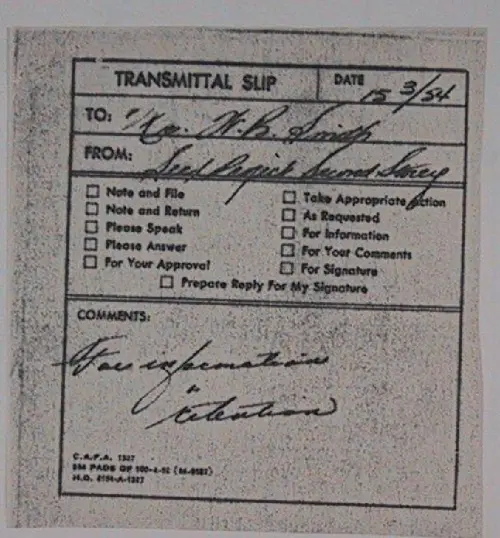 TRANSMITTAL SLIP
DATE 15 3/54
TO: Mr. W. B. Smith
FROM: Second Storey
☐ Note and File
☐ Note and Return
☐ Please Speak
☐ Please Answer
☐ For Your Approval
☐ Take Appropriate Action
☐ As Requested
☐ For Information
☐ For Your Comments
☐ For Signature
☐ Prepare Reply For My Signature
COMMENTS:
For information
&
retention
C.A.F.A. 1327
5M PADS OF 100-4-52 (M-8582)
H.Q. 8154-A-1327